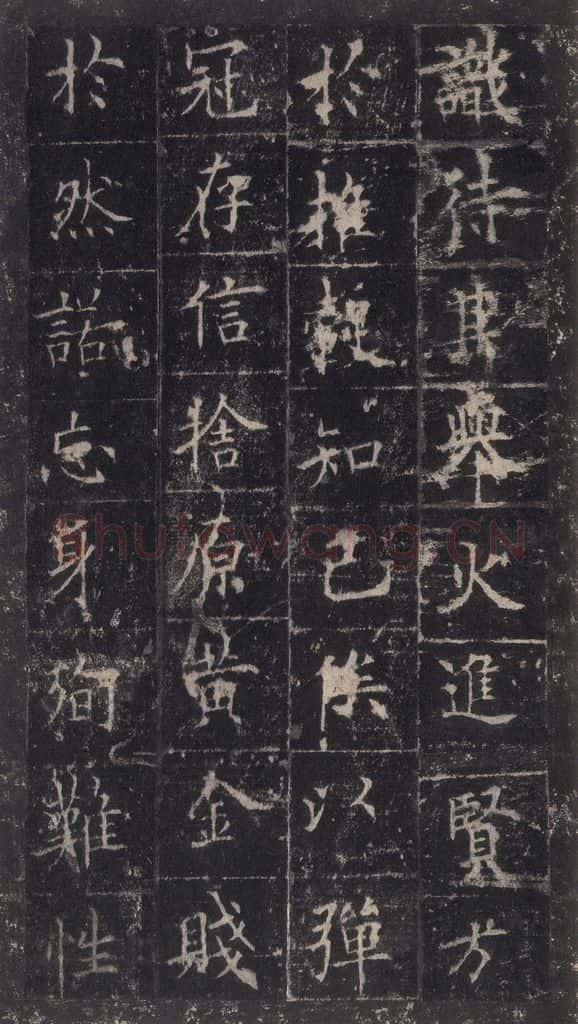 識待其舉火進賢方
於推轂知己俟以彈
冠存信捨原黃金賤
於然諾忘身殉難性
Shufawang.CN